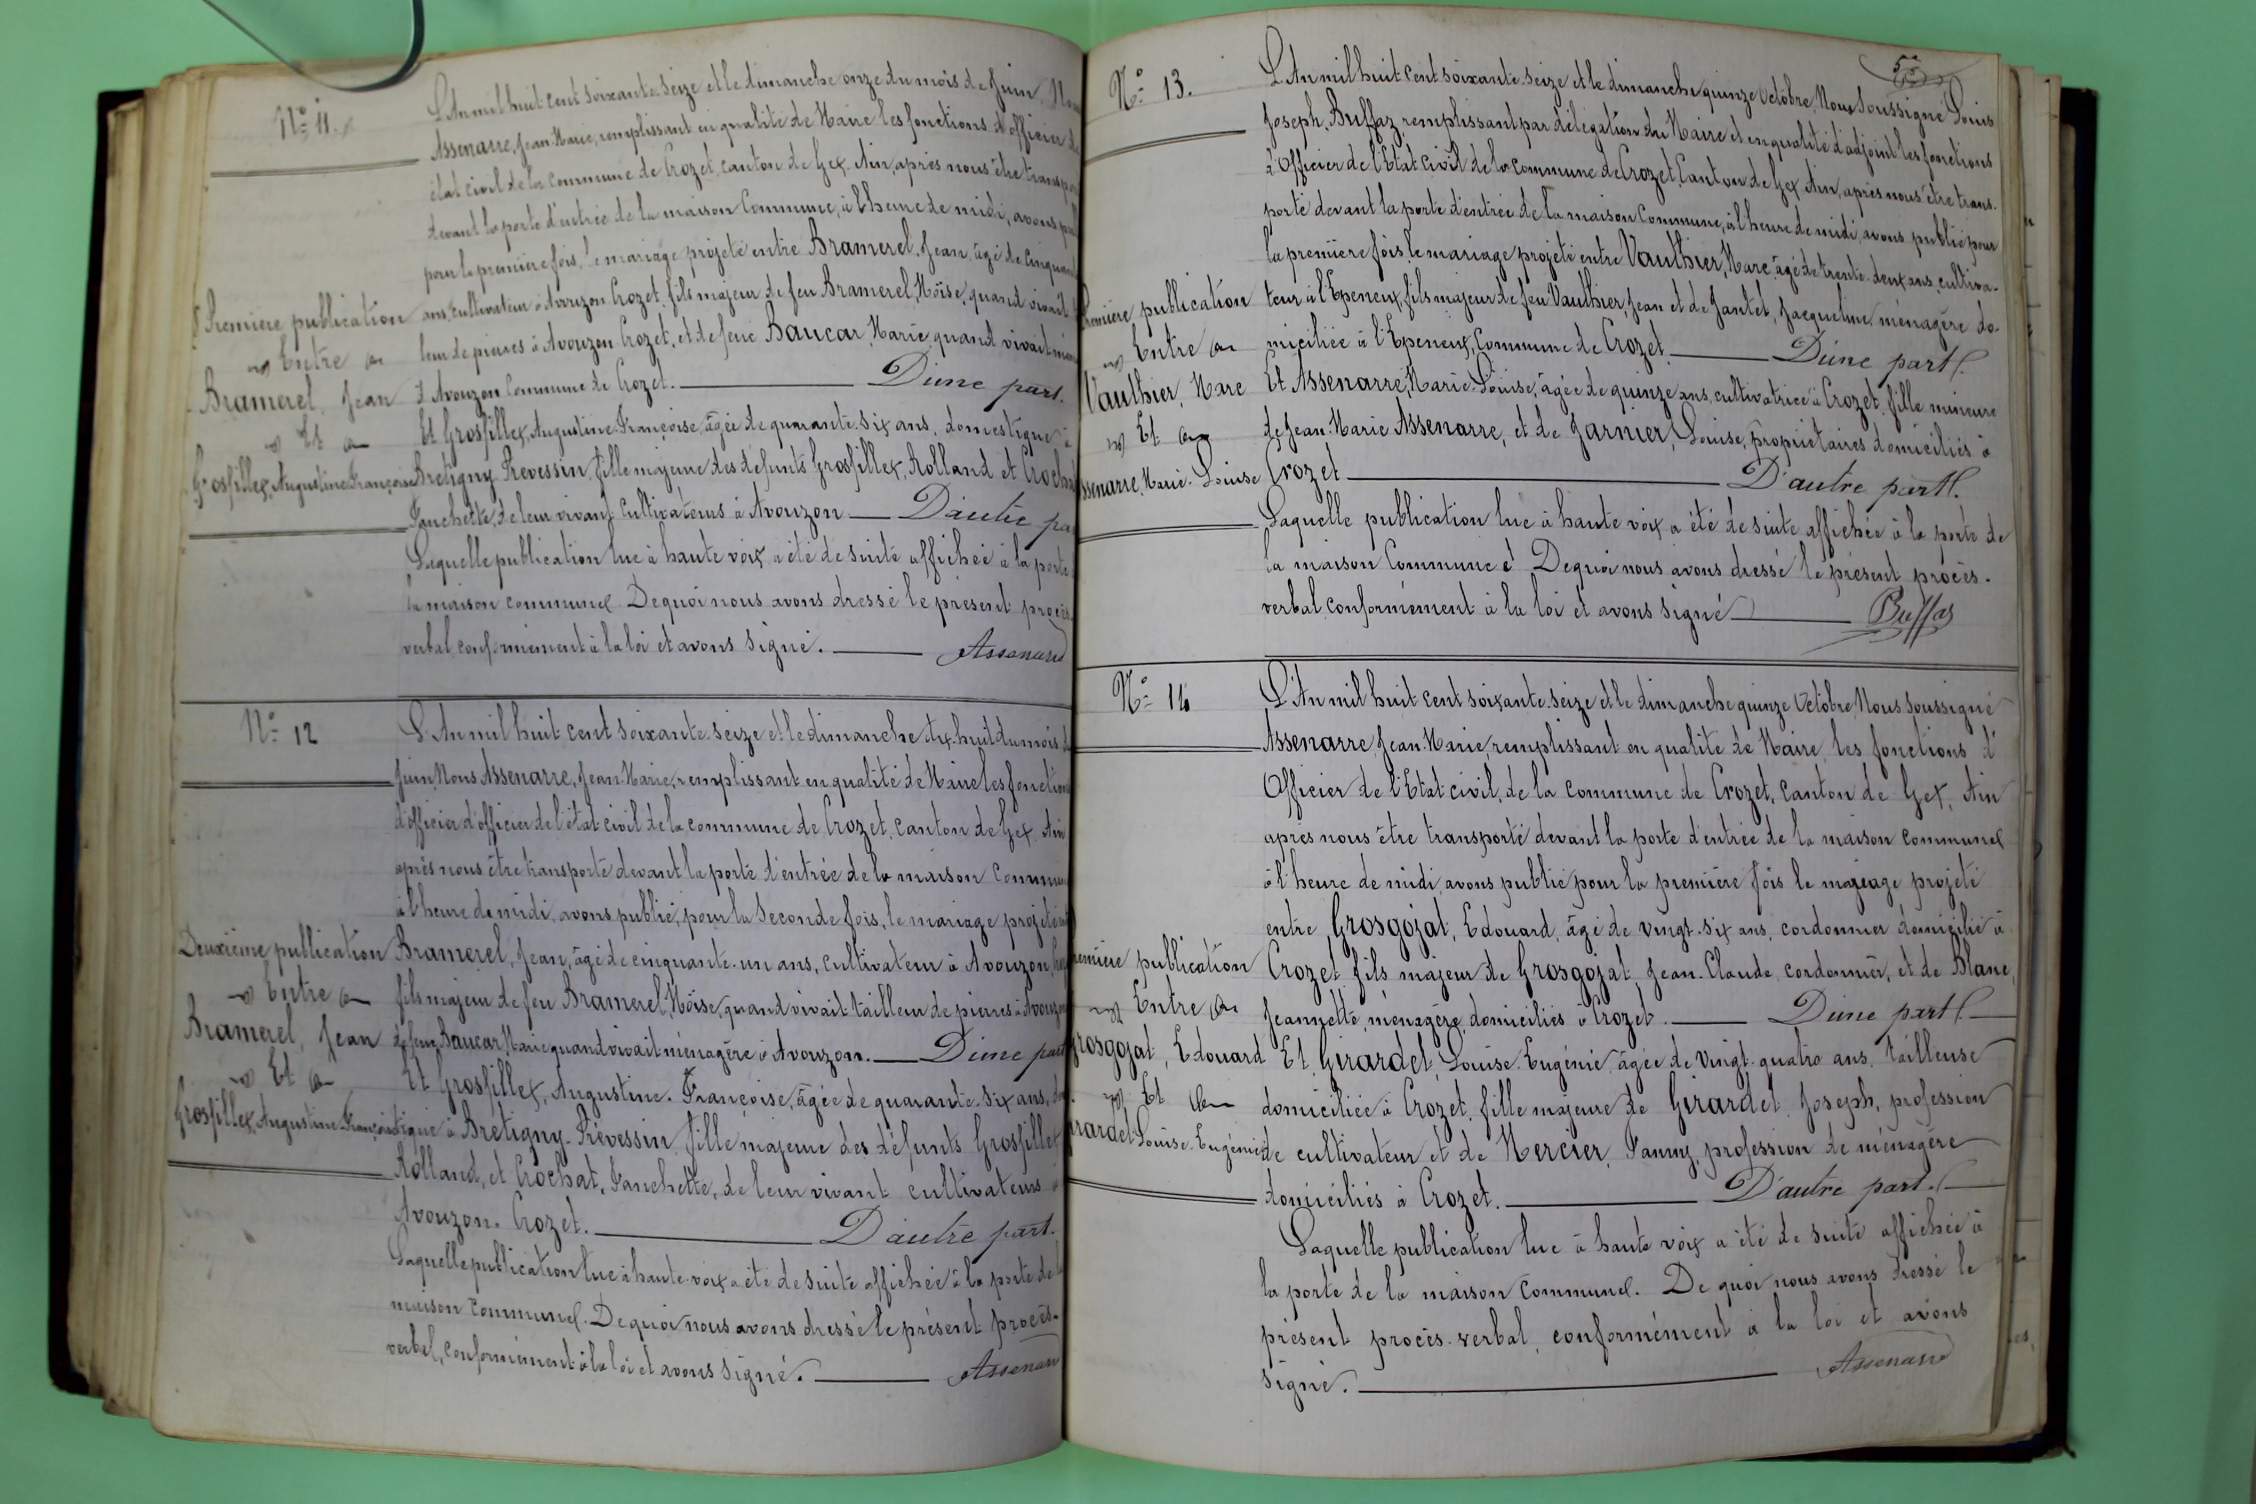 N° 11.
L'An mil huit cent soixante seize et le dimanche onze du mois de Juin, Nous
Assenarre, Jean Marie, remplissant en qualité de Maire les fonctions d'officier de
état civil de la commune de Crozet, canton de Gex, Ain, après nous être
devant la porte d'entrée de la maison Commune, à l'heure de midi, avons
pour la première fois, le mariage projeté entre Bramerel, Jean, âgé de cinquante
Première publication
Entre
Bramerel, Jean
Et
Grosfillex, Augustine Françoise
ans, cultivateur à Avouzon Crozet, fils majeur de feu Bramerel, Moïse, quand vivait
leur de pierres à Avouzon Crozet, et de feue Baucar, Marie, quand vivait
d'Avouzon Commune de Crozet. D'une part.
Et Grosfillex, Augustine Françoise, âgée de quarante six ans, domestique à
Brétigny Prévessin, fille majeure des défunts Grosfillex, Rolland et Crochat
Fanchette, de leur vivant cultivateurs à Avouzon D'autre
Laquelle publication lue à haute voix a été de suite affichée à la porte
la maison commune. De quoi nous avons dressé le présent procès
verbal conformément à la loi et avons signé. Assenarre
N° 12
L'An mil huit cent soixante seize et le dimanche dix-huit du mois de
Juin, Nous Assenarre, Jean Marie, remplissant en qualité de Maire les fonctions
d'officier d'officier de l'état civil de la commune de Crozet, canton de Gex, Ain
après nous être transporté devant la porte d'entrée de la maison commune
à l'heure de midi, avons publié, pour la seconde fois, le mariage projeté
Deuxième publication
Entre
Bramerel, Jean
Et
Grosfillex, Augustine Françoise
Bramerel, Jean, âgé de cinquante-un ans, cultivateur à Avouzon,
fils majeur de feu Bramerel, Moïse, quand vivait tailleur de pierres à Avouzon
de feue Baucar, Marie quand vivait ménagère à Avouzon. D'une part
Et Grosfillex, Augustine-Françoise, âgée de quarante-six ans,
tique à Brétigny-Prévessin, fille majeure des défunts Grosfillex
Rolland, et Crochat, Fanchette, de leur vivant cultivateurs à
Avouzon. Crozet. D'autre part.
Laquelle publication lue à haute voix a été de suite affichée à la porte de la
maison commune. De quoi nous avons dressé le présent procès-
verbal, conformément à la loi et avons signé. Assenarre
N° 13.
L'An mil huit cent soixante-seize et le dimanche quinze Octobre, Nous soussigné Louis
Joseph, Buffaz, remplissant par délégation du Maire et en qualité d'adjoint les fonctions
d'Officier de l'Etat civil de la commune de Crozet, Canton de Gex, Ain, après nous être trans-
porté devant la porte d'entrée de la maison commune, à l'heure de midi, avons publié pour
la première fois, le mariage projeté entre Vaulthier, Marc, âgé de trente-deux ans, cultiva-
Première publication
Entre
Vaulthier, Marc
Et
Assenarre, Marie-Louise
teur à l'Epeneux, fils majeur de feu Vaulthier, Jean et de Jantet, Jacqueline, ménagère do-
miciliée à l'Epeneux, Commune de Crozet. D'une part.
Et Assenarre, Marie-Louise, âgée de quinze ans, cultivatrice à Crozet, fille mineure
de Jean Marie Assenarre, et de Jarnier, Louise, propriétaires domiciliés à
Crozet D'autre part.
Laquelle publication lue à haute voix a été de suite affichée à la porte de
la maison Commune. De quoi nous avons dressé le présent procès-
verbal, conformément à la loi et avons signé Buffaz
N° 14
L'An mil huit cent soixante seize et le dimanche quinze Octobre, Nous soussigné
Assenarre, Jean-Marie, remplissant en qualité de Maire, les fonctions d'
Officier de l'Etat civil, de la commune de Crozet, canton de Gex, Ain
après nous être transporté devant la porte d'entrée de la maison commune
à l'heure de midi, avons publié pour la première fois le mariage projeté
Première publication
Entre
Grosgojat, Edouard
Et
Girardet Louise-Eugénie
entre Grosgojat, Edouard, âgé de vingt-six ans, cordonnier domicilié à
Crozet, fils majeur de Grosgojat, Jean-Claude, cordonnier, et de Blanc,
Jeannette, ménagère, domiciliés à Crozet. D'une part.
Et Girardet, Louise-Eugénie âgée de vingt-quatre ans, tailleuse
domiciliée à Crozet, fille majeure de Girardet, Joseph, profession
de cultivateur et de Mercier, Fanny, profession de ménagère
domiciliés à Crozet. D'autre part.
Laquelle publication lue à haute voix a été de suite affichée à
la porte de la maison commune. De quoi nous avons dressé le
présent procès-verbal, conformément à la loi et avons
signé. Assenarre